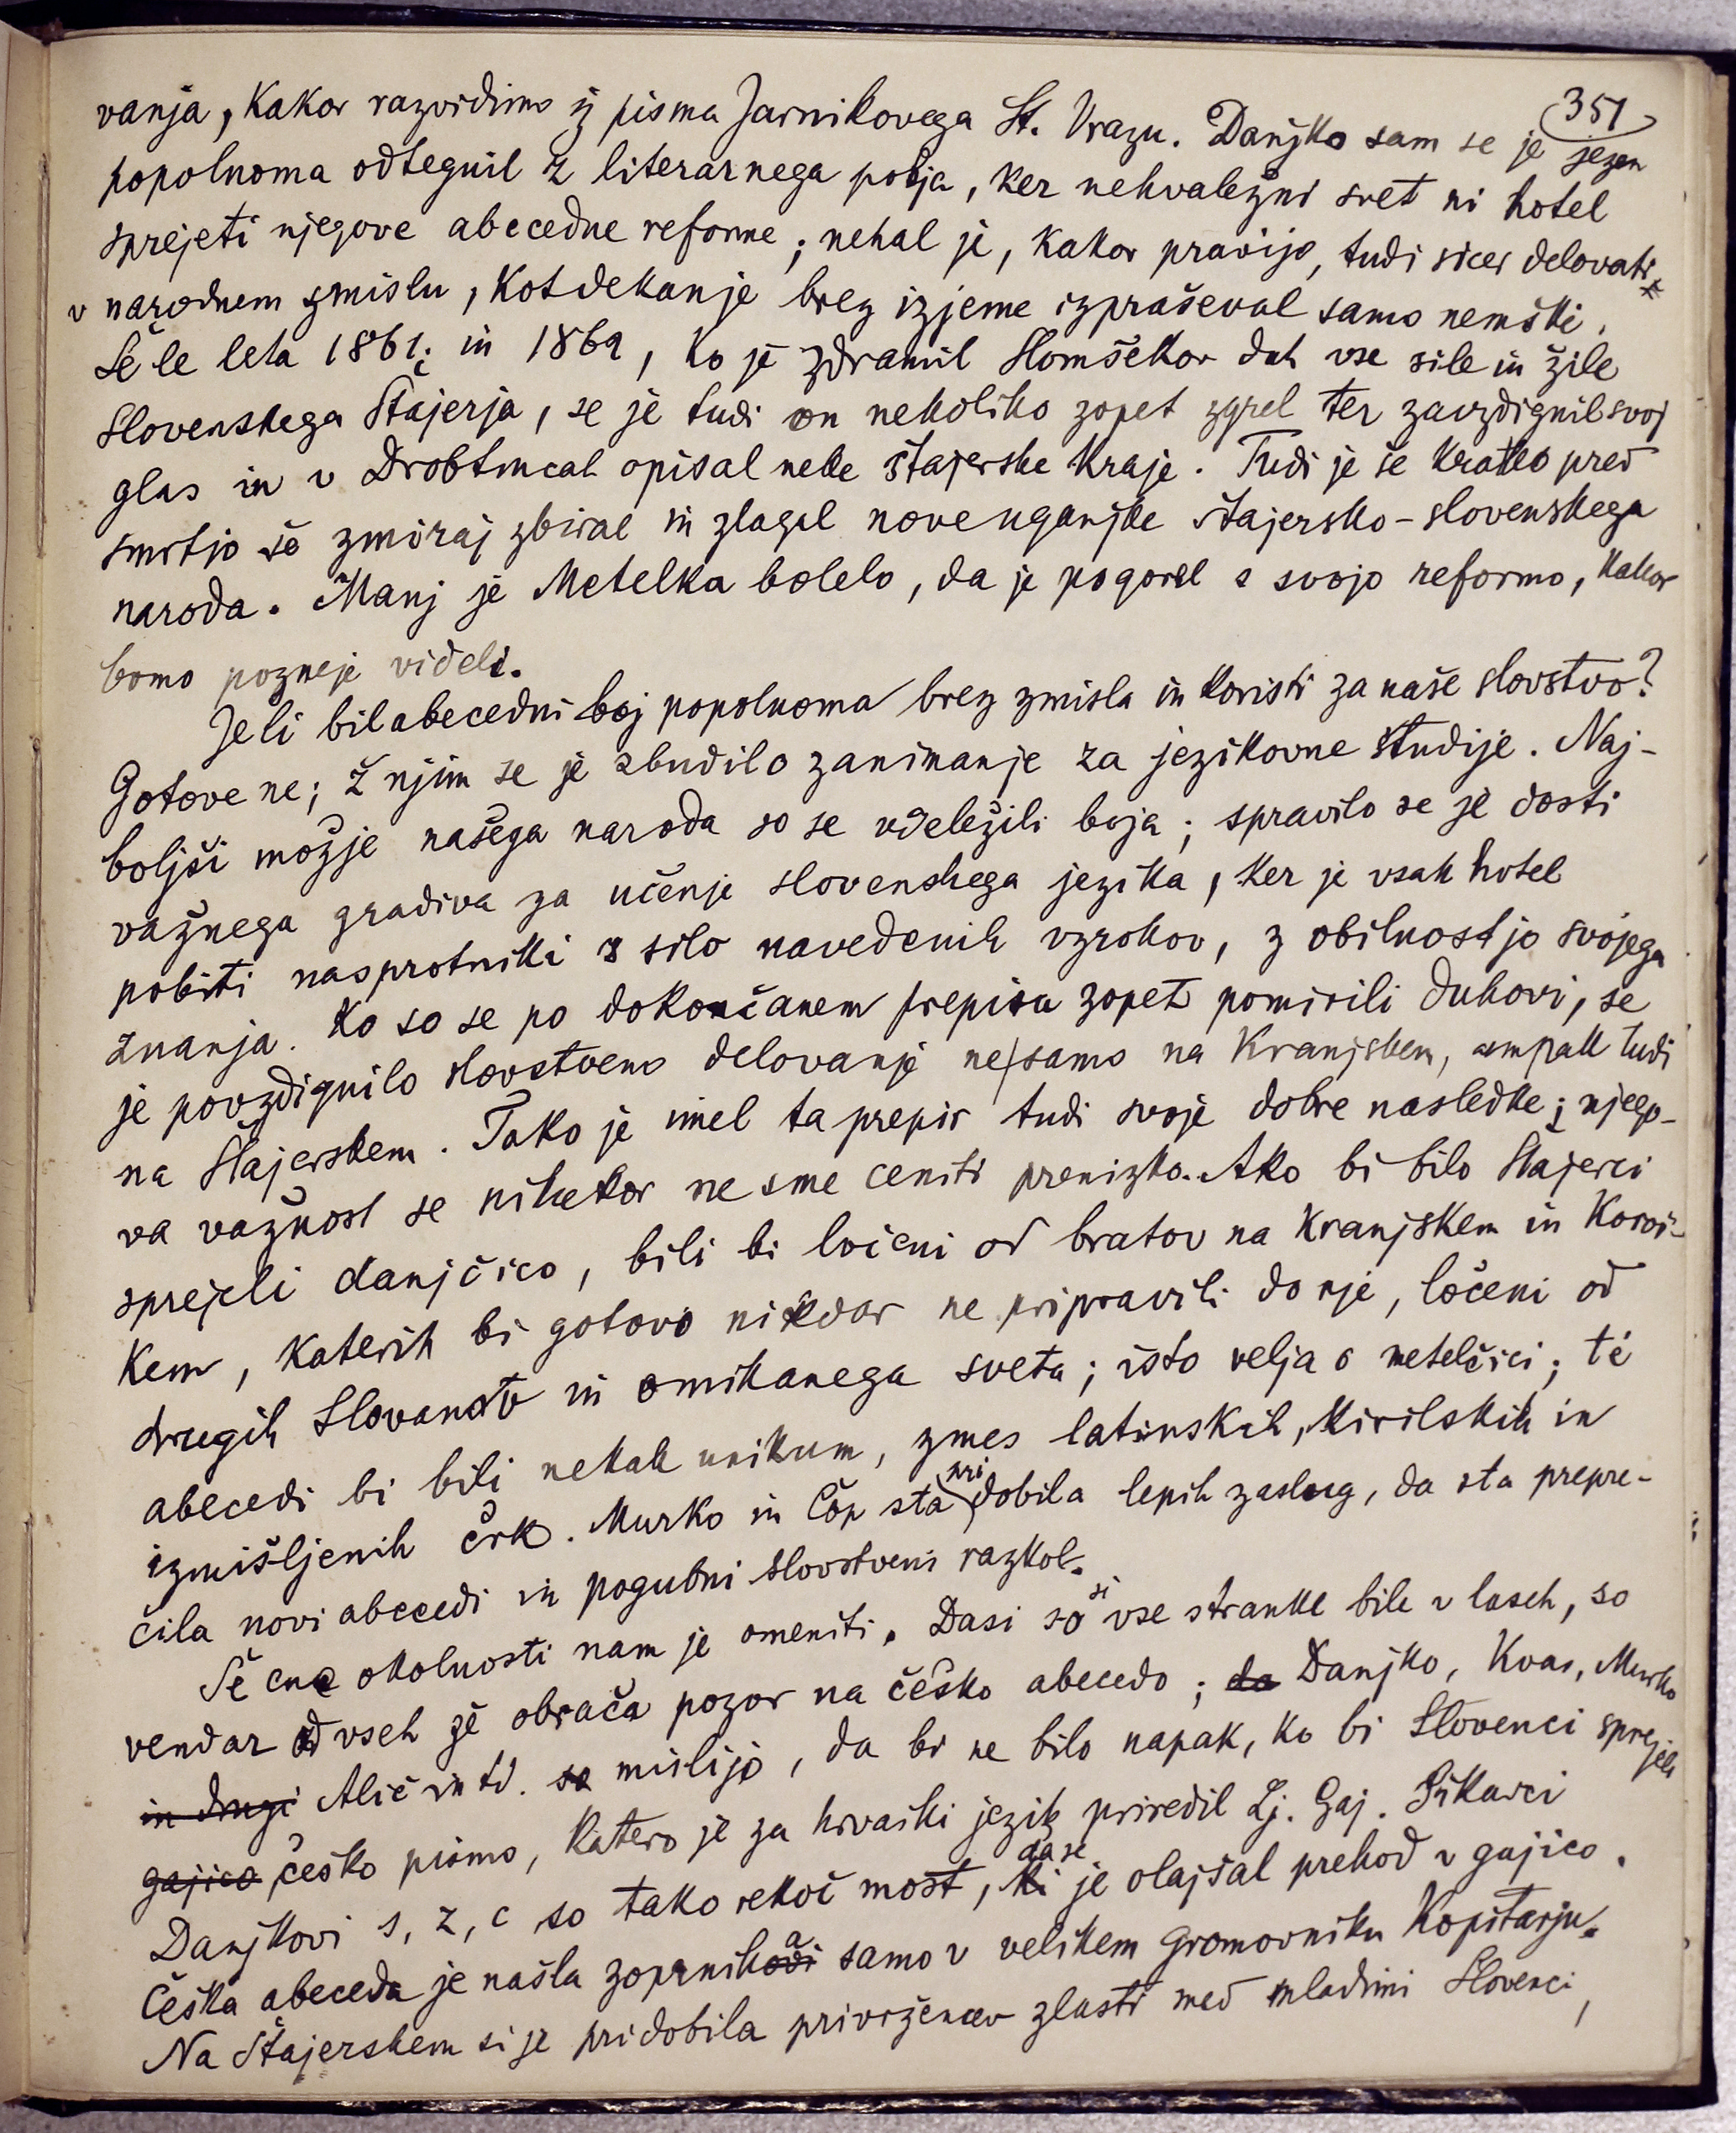 351
vanja, kakor razvidimo iz pisma Jarnikovega St. Vrazu. Danjko sam se je jezen
popolnoma odtegnil z literarnega polja, ker nehvaležni svet ni hotel
sprejeti njegove abecedne reforme; nehal je, kakor pravijo, tudi sicer delovati
v narodnem zmislu, kot dekan je brez izjeme izpraševal samo nemški.
Še le leta 1861. in 1862, ko je zdramil Slomšekov duh vse sile in žile
slovenskega Štajerja, se je tudi on nekoliko zopet zgrel ter zavzdignil svoj
glas in v Drobtincah opisal neke štajerske kraje. Tudi je še kratko pred
smrtjo še zmiraj zbiral in zlagal nove uganjke štajersko-slovenskega
naroda. Manj je Metelka bolelo, da je pogorel s svojo reformo, kakor
bomo pozneje videli.
Je li bil abecedni boj popolnoma brez zmisla in koristi za naše slovstvo?
Gotovo ne; ž njim se je zbudilo zanimanje za jezikovne študije. Naj-
boljši možje našega naroda so se vdeležili boja; spravilo se je dosti
važnega gradiva za učenje slovenskega jezika, ker je vsak hotel
pobiti nasprotniki s silo navedenih vzrokov, z obilnostjo svojega
znanja. Ko so se po dokončanem prepiru zopet pomirili duhovi, se
je povzdignilo slovstveno delovanje ne samo na Kranjskem, ampak tudi
na Štajerskem. Tako je imel ta prepir tudi svoje dobre nasledke; njego-
va važnost se nikakor ne sme ceniti prenizko. Ako bi bilo Štajerci
sprejeli danjčico, bili bi ločeni od bratov na Kranjskem in Koroš-
kem, katerih bi gotovo nikdar ne pripravili do nje, ločeni od
drugih Slovanov in omikanega sveta; isto velja o metelčici; té
abecedi bi bili nekak unikum, zmes latinskih, kirilskih in
izmišljenih črk. Murko in Čop sta pridobila lepih zaslug, da sta prepre-
čila novi abecedi in pogubni slovstveni razkol.
Še ene okolnosti nam je omeniti. Dasi so si vse stranke bile v laseh, so
vendar od vseh že obrača pozor na češko abecedo; da Danjko, Kvas, Murko
in drugi Alič in td. so mislijo, da bi ne bilo napak, ko bi Slovenci sprejeli
gajico češko pismo, katero je za hrvaški jezik priredil Lj. Gaj. Šikarci
Danjkovi s, z, c so tako rekoč most, ki da se je olajšal prehod v gajico.
Češka abeceda je našla zopernikodi a samo v velikem gromovniku Kopitarju.
Na Štajerskem si je pridobila privržencev zlasti med mladimi Slovenci,